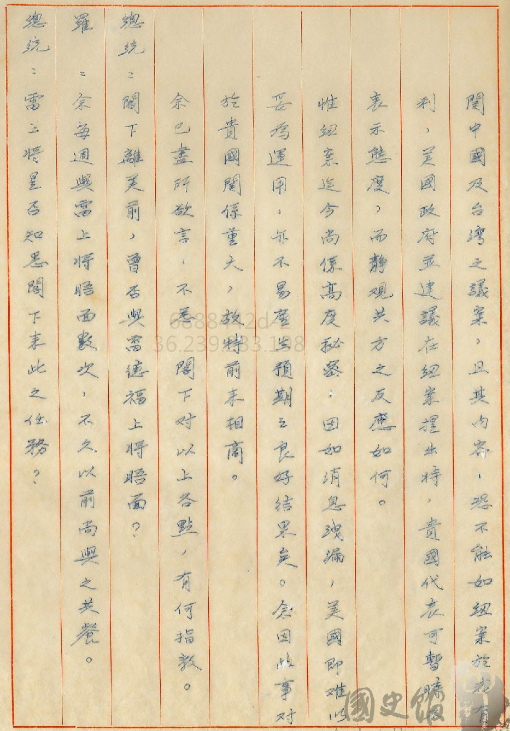 關中國及台灣之議案,且其內容,恐不能如紐案於我有
利,美國政府並建議在紐案提出時,貴國代表可暫時不
表示態度,而靜观共方之反應如何。
性紐案迄今尚係高度秘密,因如消息洩漏,美國即難以
妥為運用,亦不易產生預期之良好結果矣。余因此事對
於貴國関係重大,故特前来相商。
余已盡所欲言,不悉 閣下對以上各點,有何指教。
總統:閣下離美前,曾否與雷德福上將晤面?
羅 :余每週與雷上將晤面數次,不久以前尚與之共餐。
總統:雷上將是否知悉閣下来此之任務?
國史館